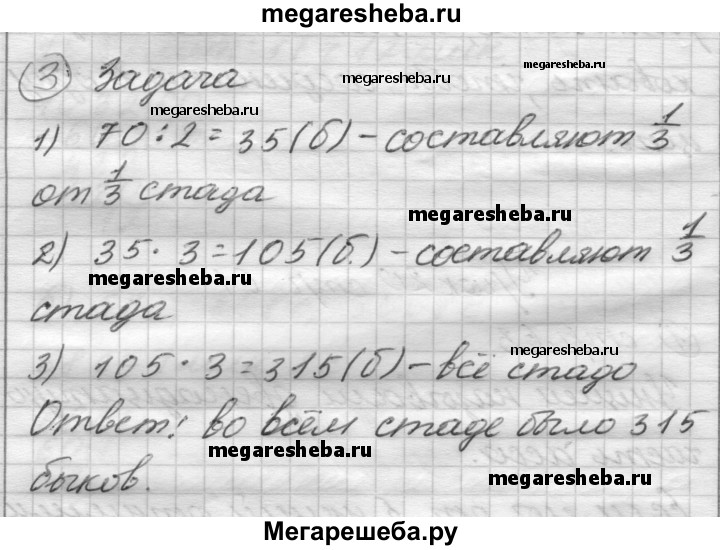 megaresheba.ru
3 Задача
megaresheba.ru
megaresheba.ru
1) 70 : 2 = 35 (б) – составляют 1/3
от 1/3 стада
megaresheba.ru
2) 35 · 3 = 105 (б.) – составляют 1/3
megaresheba.ru
стада
megaresheba.ru
3) 105 · 3 = 315 (б) – всё стадо
Ответ: во всём стаде было 315
megaresheba.ru
быков.
megaresheba.ru
Мегарешеба.ру